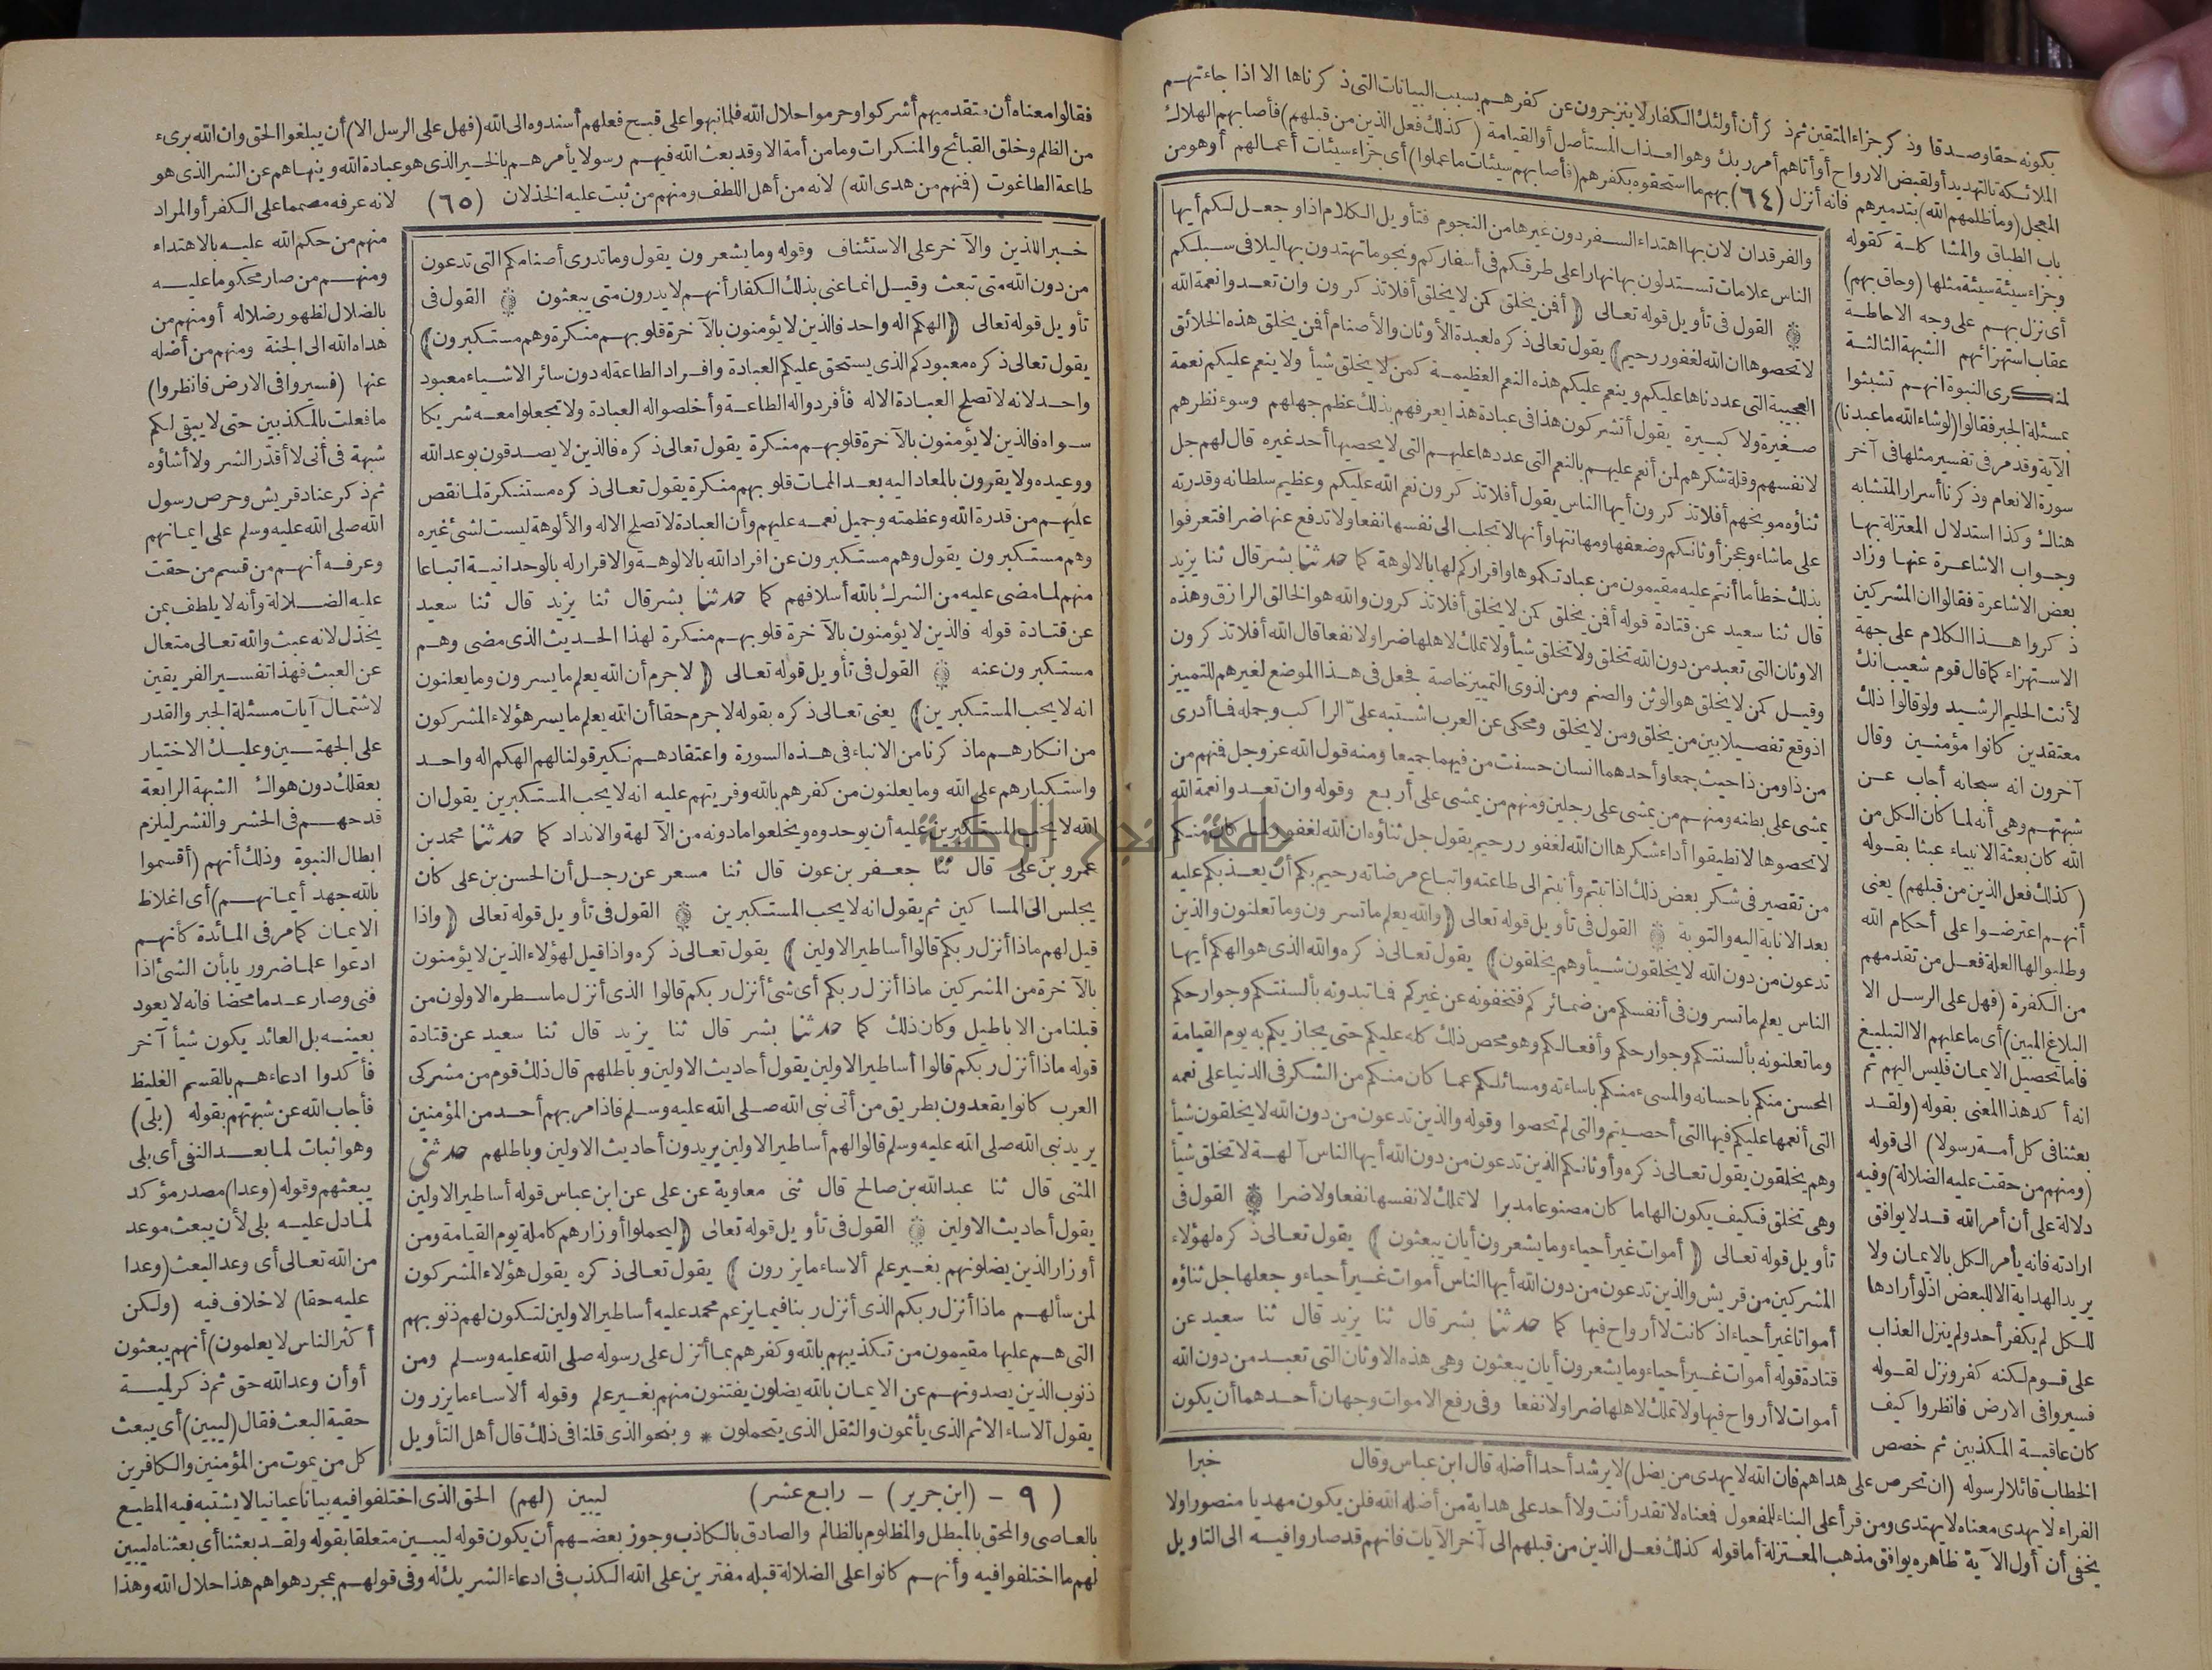 بكونه حقا وصدقا وذكر جزاء المتقين ثم ذكر أن أولئك الكفار لا ينزجرون عن كفرهم بسبب البيانات التى ذكرناها الا اذا جاءتهم
الملائكة بالتهديد أو لقبض الارواح أو أتاهم أمر ربك وهو العذاب المستأصل أو القيامة (كذلك فعل الذين من قبلهم) فأصابهم الهلاك
المعجل (وما ظلمهم الله) بتدميرهم فانه أنزل (٦٤) بهم ما استحقوه بكفرهم (فأصابهم سيئات ما عملوا) أى جزاء سيئات أعمالهم أو هو من
باب الطباق والمشاكلة كقوله
وجزاء سيئة سيئة مثلها (وحاق بهم)
أى نزل بهم على وجه الاحاطة
عقاب استهزائهم الشبهة الثالثة
لمنكرى النبوة انهم تشبثوا
بمسئلة الجبر فقالوا (لو شاء الله ما عبدنا)
الآية وقد مر فى تفسير مثلها فى آخر
سورة الانعام وذكرنا أسرار المتشابه
هناك وكذا استدلال المعتزلة بها
وجواب الاشاعرة عنها وزاد
بعض الاشاعرة فقالوا ان المشركين
ذكروا هذا الكلام على جهة
الاستهزاء كما قال قوم شعيب انك
لأنت الحليم الرشيد ولو قالوا ذلك
معتقدين كانوا مؤمنين وقال
آخرون انه سبحانه أجاب عن
شبهتهم وهى أنه لما كان الكل من
الله كان بعثة الانبياء عبثا بقوله
(كذلك فعل الذين من قبلهم) يعنى
أنهم اعترضوا على أحكام الله
وطلبوا لها العلة فعل من تقدمهم
من الكفرة (فهل على الرسل الا
البلاغ المبين) أى ما عليهم الا التبليغ
فأما تحصيل الايمان فليس اليهم ثم
انه أكد هذا المعنى بقوله (ولقد
بعثنا فى كل أمة رسولا) الى قوله
(ومنهم من حقت عليه الضلالة) وفيه
دلالة على أن أمر الله قد لا يوافق
ارادته فانه يأمر الكل بالايمان ولا
يريد الهداية الا للبعض اذ لو أرادها
للكل لم يكفر أحد ولم ينزل العذاب
على قوم لكنه كفر ونزل لقوله
فسيروا فى الارض فانظروا كيف
كان عاقبة المكذبين ثم خصص
والفرقدان لان بها اهتداء السفر دون غيرها من النجوم فتأويل الكلام اذا وجعل لكم أيها
الناس علامات تستدلون بها نهارا على طرقكم فى أسفاركم ونجوما تهتدون بها ليلا فى سبلكم
القول فى تأويل قوله تعالى (أفمن يخلق كمن لا يخلق أفلا تذكرون وان تعدوا نعمة الله
لا تحصوها ان الله لغفور رحيم) يقول تعالى ذكره لعبدة الأوثان والأصنام أفمن يخلق هذه الخلائق
العجيبة التى عددناها عليكم وينعم عليكم هذه النعم العظيمة كمن لا يخلق شيأ ولا ينعم عليكم نعمة
صغيرة ولا كبيرة يقول أتشركون هذا فى عبادة هذا يعرفهم بذلك عظم جهلهم وسوء نظرهم
لانفسهم وقلة شكرهم لمن أنعم عليهم بالنعم التى عددها عليهم التى لا يحصيها أحد غيره قال لهم جل
ثناؤه موبخهم أفلا تذكرون أيها الناس يقول أفلا تذكرون نعم الله عليكم وعظيم سلطانه وقدرته
على ما شاء وعجز أوثانكم وضعفها ومهانتها وأنها لا تجلب الى نفسها نفعا ولا تدفع عنها ضرا فتعرفوا
بذلك خطأ ما أنتم عليه مقيمون من عبادتكموها واقراركم لها بالالوهة كما حدثنا بشر قال ثنا يزيد
قال ثنا سعيد عن قتادة قوله أفمن يخلق كمن لا يخلق أفلا تذكرون والله هو الخالق الرازق وهذه
الاوثان التى تعبد من دون الله تخلق ولا تخلق شيأ ولا تملك لاهلها ضرا ولا نفعا قال الله أفلا تذكرون
وقيل كمن لا يخلق هو الوثن والصنم ومن لذوى التمييز خاصة فجعل فى هذا الموضع لغيرهم للتمييز
اذ وقع تفصيلا بين من يخلق ومن لا يخلق ومحكى عن العرب اشتبه على الراكب وجمله فما أدرى
من ذا ومن ذا حيث جمعا وأحدهما انسان حسنت من فيهما جميعا ومنه قول الله عز وجل فمنهم من
يمشى على بطنه ومنهم من يمشى على رجلين ومنهم من يمشى على أربع وقوله وان تعدوا نعمة الله
لا تحصوها لا تطيقوا أداء شكرها ان الله لغفور رحيم يقول جل ثناؤه ان الله لغفور لما كان منكم
من تقصير فى شكر بعض ذلك اذا تبتم وأنبتم الى طاعته واتباع مرضاته رحيم بكم أن يعذبكم عليه
بعد الانابة اليه والتوبة القول فى تأويل قوله تعالى (والله يعلم ما تسرون وما تعلنون والذين
تدعون من دون الله لا يخلقون شيأ وهم يخلقون) يقول تعالى ذكره والله الذى هو الهكم أيها
الناس يعلم ما تسرون فى أنفسكم من ضمائركم فتخفونه عن غيركم فما تبدونه بألسنتكم وجوارحكم
وما تعلنونه بألسنتكم وجوارحكم وأفعالكم وهو محص ذلك كله عليكم حتى يجازيكم به يوم القيامة
المحسن منكم باحسانه والمسىء منكم باساءته ومسائلكم عما كان منكم من الشكر فى الدنيا على نعمه
التى أنعمها عليكم فيها التى أحصيتم والتى لم تحصوا وقوله والذين تدعون من دون الله لا يخلقون شيأ
وهم يخلقون يقول تعالى ذكره وأوثانكم الذين تدعون من دون الله أيها الناس آلهة لا تخلق شيأ
وهى تخلق فكيف يكون الها ما كان مصنوعا مدبرا لا تملك لانفسها نفعا ولا ضرا القول فى
تأويل قوله تعالى (أموات غير أحياء وما يشعرون أيان يبعثون) يقول تعالى ذكره لهؤلاء
المشركين من قريش والذين تدعون من دون الله أيها الناس أموات غير أحياء وجعلها جل ثناؤه
أمواتا غير أحياء اذ كانت لا أرواح فيها كما حدثنا بشر قال ثنا يزيد قال ثنا سعيد عن
قتادة قوله أموات غير أحياء وما يشعرون أيان يبعثون وهى هذه الاوثان التى تعبد من دون الله
أموات لا أرواح فيها ولا تملك لاهلها ضرا ولا نفعا وفى رفع الاموات وجهان أحدهما أن يكون
خبرا
الخطاب قائلا لرسوله (ان تحرص على هداهم فان الله لا يهدى من يضل) لا يرشد أحدا أضله قال ابن عباس وقال
الفراء لا يهدى معناه لا يهتدى ومن قرأ على البناء للمفعول فمعناه لا تقدر أنت ولا أحد على هداية من أضله الله فلن يكون مهديا منصورا ولا
يخفى أن أول الآية ظاهره يوافق مذهب المعتزلة أما قوله كذلك فعل الذين من قبلهم الى آخر الآيات فانهم قد صاروا فيه الى التاويل
فقالوا معناه أن متقدميهم أشركوا وحرموا حلال الله فلما نبهوا على قبح فعلهم أسندوه الى الله (فهل على الرسل الا) أن يبلغوا الحق وان الله برىء
من الظلم وخلق القبائح والمنكرات وما من أمة الا وقد بعث الله فيهم رسولا يأمرهم بالخير الذى هو عبادة الله وينهاهم عن الشر الذى هو
طاعة الطاغوت (فمنهم من هدى الله) لانه من أهل اللطف ومنهم من ثبت عليه الخذلان (٦٥) لانه عرفه مصمما على الكفر أو المراد
خبر اللذين والآخر على الاستئناف وقوله وما يشعرون يقول وما تدرى أصنامكم التى تدعون
من دون الله متى تبعث وقيل انما عنى بذلك الكفار أنهم لا يدرون متى يبعثون القول فى
تأويل قوله تعالى (الهكم اله واحد فالذين لا يؤمنون بالآخرة قلوبهم منكرة وهم مستكبرون)
يقول تعالى ذكره معبودكم الذى يستحق عليكم العبادة وافراد الطاعة له دون سائر الاشياء معبود
واحد لانه لا تصلح العبادة الا له فأفردوا له الطاعة وأخلصوا له العبادة ولا تجعلوا معه شريكا
سواه فالذين لا يؤمنون بالآخرة قلوبهم منكرة يقول تعالى ذكره فالذين لا يصدقون بوعد الله
ووعيده ولا يقرون بالمعاد اليه بعد الممات قلوبهم منكرة يقول تعالى ذكره مستنكرة لما نقص
عليهم من قدرة الله وعظمته وجميل نعمه عليهم وأن العبادة لا تصلح الا له والألوهة ليست لشئ غيره
وهم مستكبرون يقول وهم مستكبرون عن افراد الله بالالوهة والاقرار له بالوحدانية اتباعا
منهم لما مضى عليه من الشرك بالله أسلافهم كما حدثنا بشر قال ثنا يزيد قال ثنا سعيد
عن قتادة قوله فالذين لا يؤمنون بالآخرة قلوبهم منكرة لهذا الحديث الذى مضى وهم
مستكبرون عنه القول فى تأويل قوله تعالى (لا جرم أن الله يعلم ما يسرون وما يعلنون
انه لا يحب المستكبرين) يعنى تعالى ذكره بقوله لا جرم حقا أن الله يعلم ما يسر هؤلاء المشركون
من انكارهم ما ذكرنا من الانباء فى هذه السورة واعتقادهم نكير قولنا لهم الهكم اله واحد
واستكبارهم على الله وما يعلنون من كفرهم بالله وفريتهم عليه انه لا يحب المستكبرين يقول ان
الله لا يحب المستكبرين عليه أن يوحدوه ويخلعوا ما دونه من الآلهة والانداد كما حدثنا محمد بن
عمرو بن على قال ثنا جعفر بن عون قال ثنا مسعر عن رجل أن الحسن بن على كان
يجلس الى المساكين ثم يقول انه لا يحب المستكبرين القول فى تأويل قوله تعالى (واذا
قيل لهم ماذا أنزل ربكم قالوا أساطير الاولين) يقول تعالى ذكره واذا قيل لهؤلاء الذين لا يؤمنون
بالآخرة من المشركين ماذا أنزل ربكم أى شئ أنزل ربكم قالوا الذى أنزل ما سطره الاولون من
قبلنا من الاباطيل وكان ذلك كما حدثنا بشر قال ثنا يزيد قال ثنا سعيد عن قتادة
قوله ماذا أنزل ربكم قالوا أساطير الاولين يقول أحاديث الاولين وباطلهم قال ذلك قوم من مشركى
العرب كانوا يقعدون بطريق من أتى نبى الله صلى الله عليه وسلم فاذا مر بهم أحد من المؤمنين
يريد نبى الله صلى الله عليه وسلم قالوا لهم أساطير الاولين يريدون أحاديث الاولين وباطلهم حدثنى
المثنى قال ثنا عبد الله بن صالح قال ثنى معاوية عن على عن ابن عباس قوله أساطير الاولين
يقول أحاديث الاولين القول فى تأويل قوله تعالى (ليحملوا أوزارهم كاملة يوم القيامة ومن
أوزار الذين يضلونهم بغير علم ألا ساء ما يزرون) يقول تعالى ذكره يقول هؤلاء المشركون
لمن سألهم ماذا أنزل ربكم الذى أنزل ربنا فيما يزعم محمد عليه أساطير الاولين لتكون لهم ذنوبهم
التى هم عليها مقيمون من تكذيبهم بالله وكفرهم بما أنزل على رسوله صلى الله عليه وسلم ومن
ذنوب الذين يصدونهم عن الايمان بالله يضلون يفتنون منهم بغير علم وقوله ألا ساء ما يزرون
يقول ألا ساء الاثم الذى يأثمون والثقل الذى يتحملون * وبنحو الذى قلنا فى ذلك قال أهل التأويل
منهم من حكم الله عليه بالاهتداء
ومنهم من صار محكوما عليه
بالضلال لظهور ضلاله أو منهم من
هداه الله الى الجنة ومنهم من أضله
عنها (فسيروا فى الارض فانظروا)
ما فعلت بالمكذبين حتى لا يبقى لكم
شبهة فى أنى لا أقدر الشر ولا أشاؤه
ثم ذكر عناد قريش وحرص رسول
الله صلى الله عليه وسلم على ايمانهم
وعرفه أنهم من قسم من حقت
عليه الضلالة وأنه لا يلطف بمن
يخذل لانه عبث والله تعالى متعال
عن العبث فهذا تفسير الفريقين
لاشتمال آيات مسئلة الجبر والقدر
على الجهتين وعليك الاختيار
بعقلك دون هواك الشبهة الرابعة
قدحهم فى الحشر والنشر ليلزم
ابطال النبوة وذلك أنهم (أقسموا
بالله جهد أيمانهم) أى اغلاظ
الايمان كما مر فى المائدة كأنهم
ادعوا علما ضروريا بأن الشئ اذا
فنى وصار عدما محضا فانه لا يعود
بعينه بل العائد يكون شيأ آخر
فأكدوا ادعاءهم بالقسم الغليظ
فأجاب الله عن شبهتهم بقوله (بلى)
وهو اثبات لما بعد النفى أى بلى
يبعثهم وقوله (وعدا) مصدر مؤكد
لما دل عليه بلى لأن يبعث موعد
من الله تعالى أى وعد البعث (وعدا
عليه حقا) لا خلاف فيه (ولكن
أكثر الناس لا يعلمون) أنهم يبعثون
أو أن وعد الله حق ثم ذكر لمية
حقية البعث فقال (ليبين) أى يبعث
كل من يموت من المؤمنين والكافرين
(٩ - (ابن جرير) - رابع عشر)
ليبين (لهم) الحق الذى اختلفوا فيه بيانا عيانيا لا يشتبه فيه المطيع
بالعاصى والمحق بالمبطل والمظلوم بالظالم والصادق بالكاذب وجوز بعضهم أن يكون قوله ليبين متعلقا بقوله ولقد بعثنا أى بعثناه ليبين
لهم ما اختلفوا فيه وأنهم كانوا على الضلالة قبله مفترين على الله الكذب فى ادعاء الشريك له وفى قولهم بمجرد هواهم هذا حلال الله وهذا
جامعة النجاح الوطنية